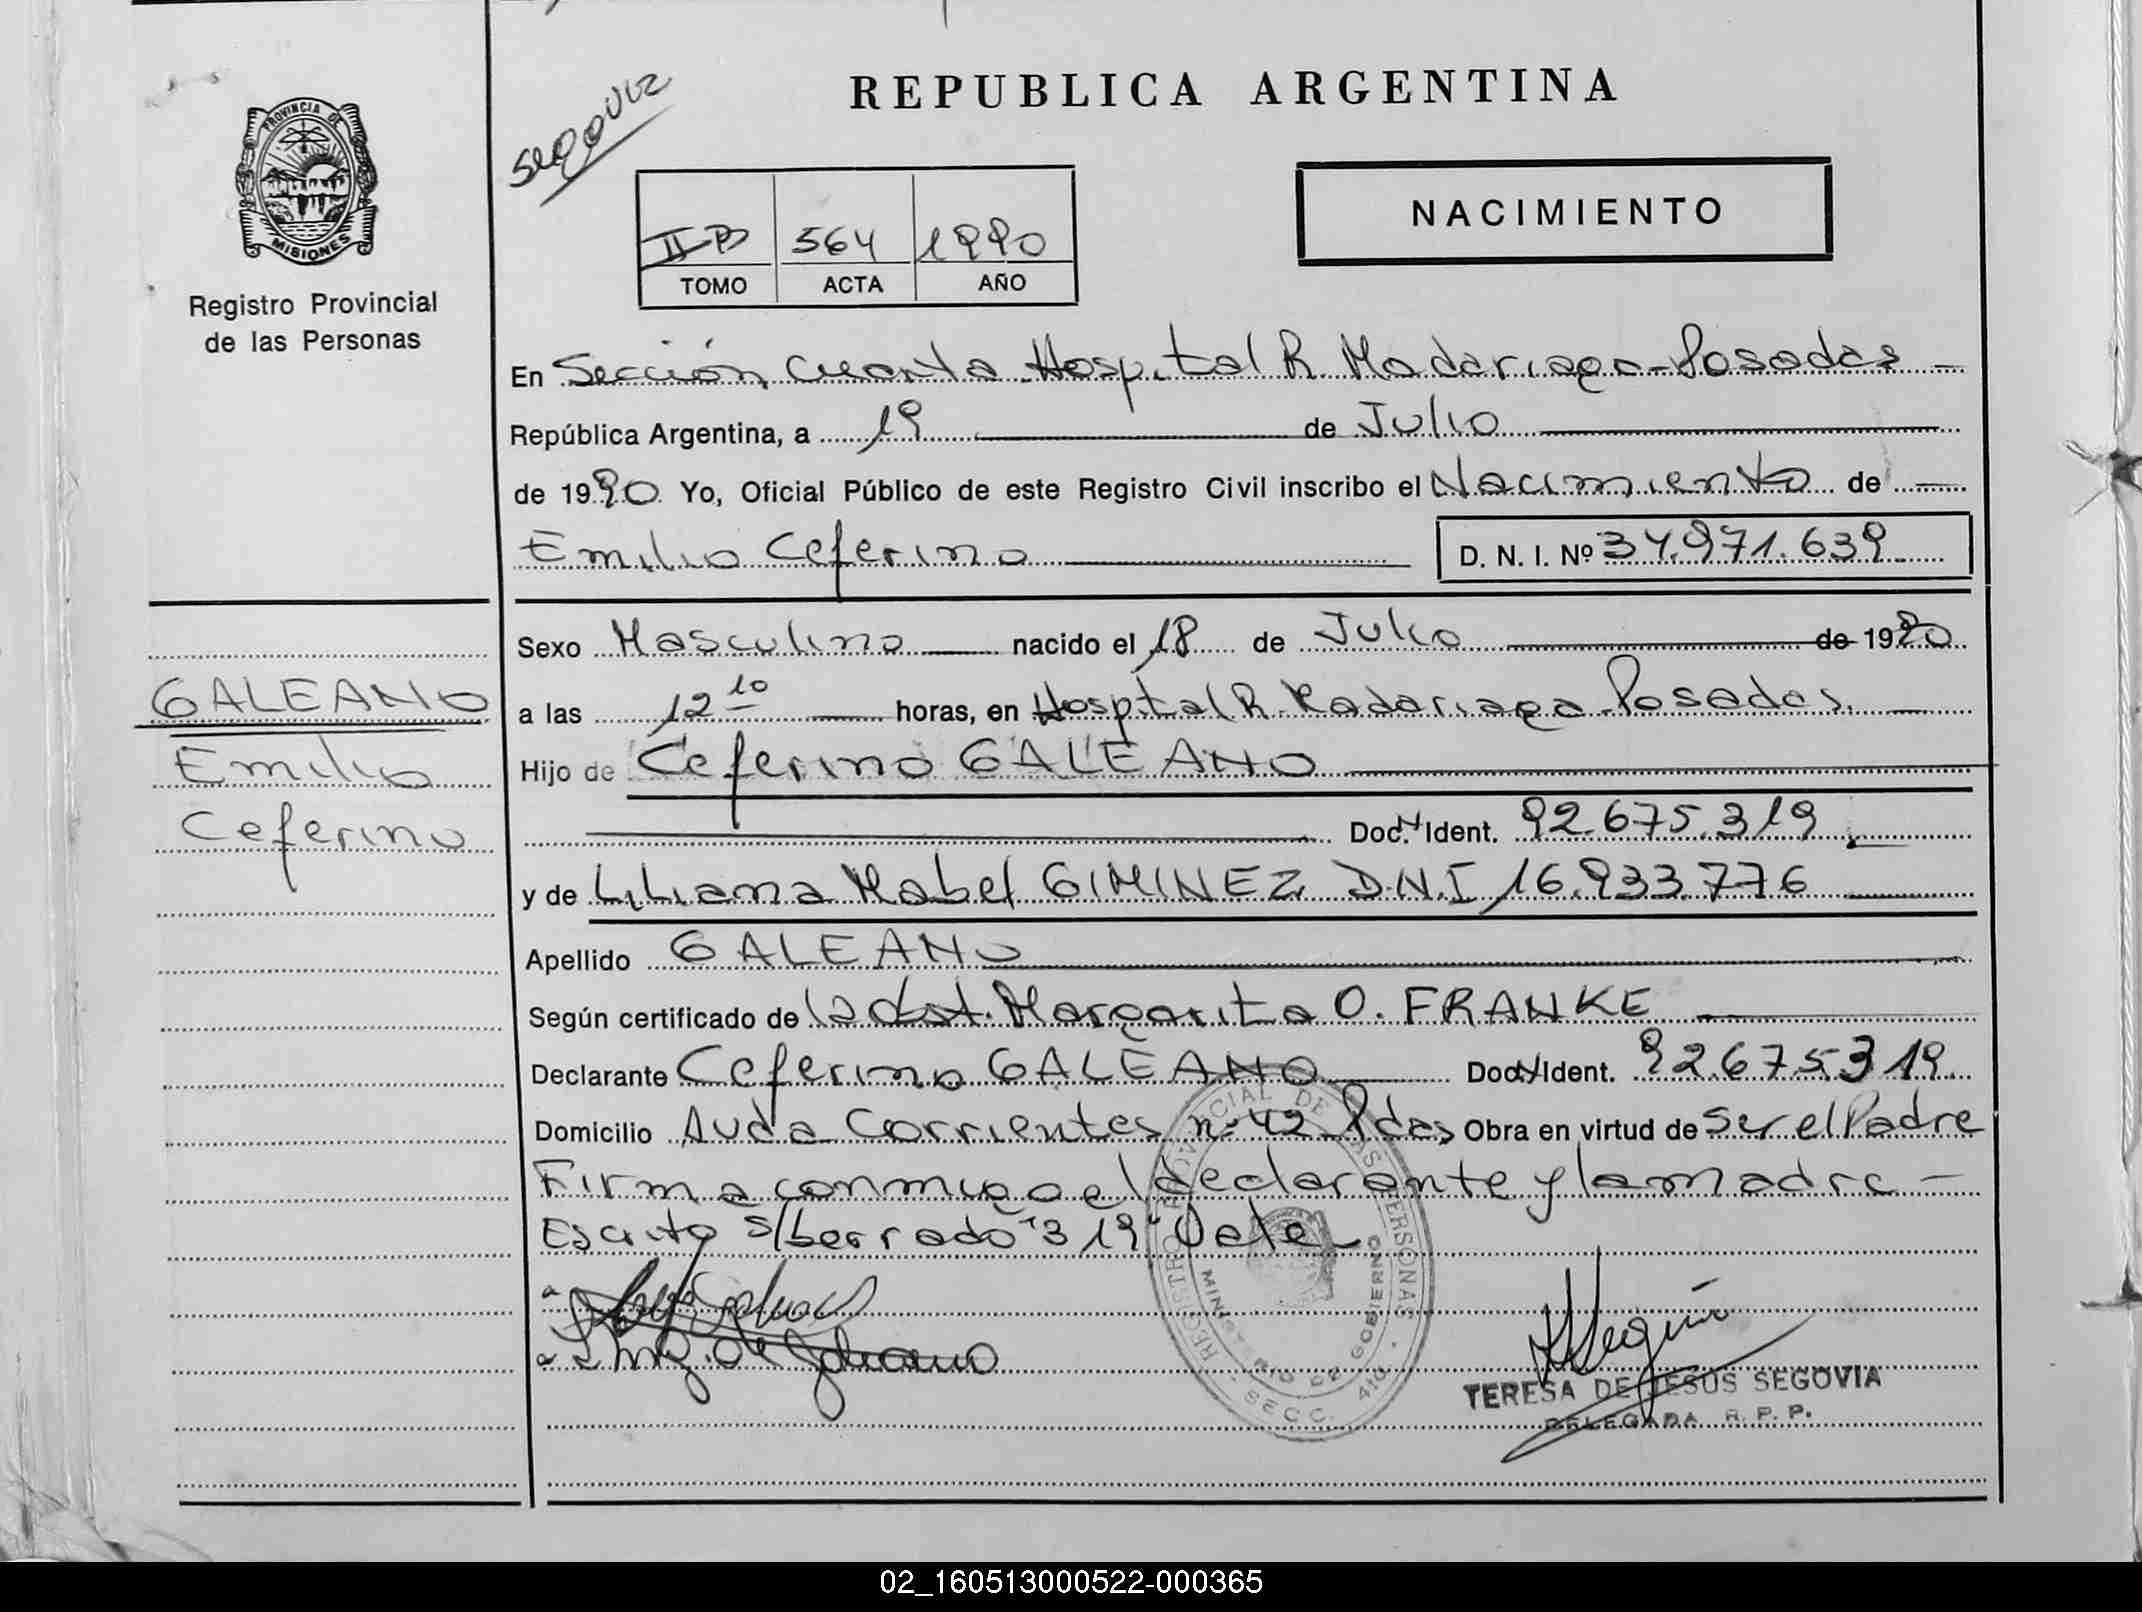 REPUBLICA ARGENTINA
PROVINCIA DE
MISIONES
Registro Provincial
de las Personas
II B 564 1990
TOMO ACTA AÑO
NACIMIENTO
En Sección Cuarta Hospital R Madariaga - Posadas -
República Argentina, a 19 de Julio
de 1990 Yo, Oficial Público de este Registro Civil inscribo el Nacimiento de
Emilio Ceferino D. N. I. Nº 34.971.639
Sexo Masculino nacido el 18 de Julio de 1990
a las 12 10 horas, en Hospital R. Madariaga - Posadas.
GALEANO
Emilio
Ceferino
Hijo de Ceferino GALEANO
Doc. Ident. 92.675.319
y de Liliana Mabel GIMINEZ D.N.I 16.933.776
Apellido GALEANO
Según certificado de la obst. Margarita O. FRANKE
Declarante Ceferino GALEANO Doc. Ident. 92.675.319
Domicilio Avda Corrientes nº 42 Pdas, Obra en virtud de Ser el Padre
Firma conmigo el declarante y la madre -
Escrito s/berrado "319" Vale
REGISTRO PROVINCIAL DE LAS PERSONAS
MINISTERIO DE GOBIERNO
SECC. 4ta
TERESA DE JESUS SEGOVIA
DELEGADA R. P. P.
02_160513000522-000365